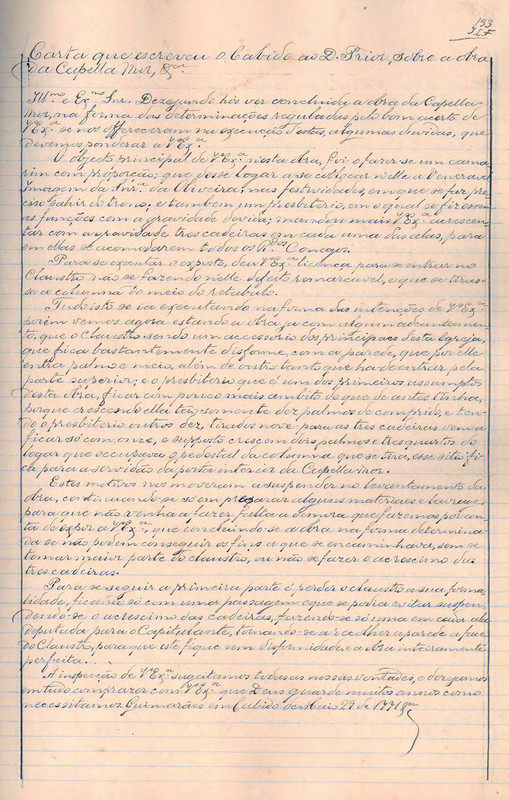 133
Carta que escreveu o Cabido ao D. Prior, sobre a obra
da Capella Mor, &ª.
Illmo e Exmo Snr. Dezejando nós ver concluida a obra da Capella
Mor, na forma das determinações reguladas pelo bom acerto de
V Exª. se nos offereceram na execução d'estas, algumas duvidas, que
devemos ponderar a V Exª.
O objecto principal de V Exª. n'esta obra, foi o fazer-se um cama
rim com proporção, que desse logar a se collocar n'elle a Veneravel
Imagem da Snrª. da Oliveira, nas festividades, em que se faz pre
ciso sahir do trono; e tambem um presbiterio, em o qual se fizessem
as funcções com a gravidade devida; mandou mais V Exª. acrescen-
tar com a gravidade tres cadeiras em cada uma das alas, para
em ellas se acomodarem todos os Rdos Conegos.
Para se executar o exposto, deu V Exª. licença para se entrar no
Claustro não se fazendo n'elle defeito remarcavel, e que se tiras-
se a columna do meio do retabulo.
Tudo isto se ia executando na forma das intenções de V Exª.
porém vemos agora estando a obra ja com algum adeantamen-
to, que o Claustro sendo um accessorio dos principaes d'esta Egreja,
que fica bastantemente disforme, com a parede, que por elle
entra palmo e meio, alem de outro tanto que ha de entrar pela
parte superior; e o presbiterio que é um dos primeiros assumptos
d'esta obra, ficar com pouco mais ambito do que de antes tinha,
porque crescendo ella tão somente dez palmos de comprido, e ten-
do o presbiterio outros dez, tirados nove para as tres cadeiras vem a
ficar só com onze, e supposto crescem dois palmos e tres quartos do
logar que occupava o pedestal da columna que se tira, esse sitio fi-
ca para a servidão da porta interior da Capella mor.
Estes motivos nos moveram a suspender no levantamento da
obra, continuando-se só em preparar alguns materiaes e lavrados
para que não venha a fazer falta a demora que fazemos por con-
ta de expor a V Exª. que concluindo-se a obra na forma determina-
da se não podem conseguir os fins a que se encaminhara, sem se
tomar maior parte do claustro, ou não se fazer o acrescimo das
tres cadeiras.
Para se seguir a primeira parte é perder o claustro a sua forma-
lidade, ficando só com uma passagem o que se podia evitar suspen-
dendo-se o acrescimo das cadeiras, fazendo-se só uma em cada ala
deputada para o Capitulante, tornando-se a recolher a parede a face
do Claustro, para que este fique sem disformidade, e a obra inteiramente
perfeita...
A inspeção de V Exª. sugeitamos todas as nossas vontades, e dezejamos
em tudo comprazer com V Exª. que Deus guarde muitos annos como
necessitamos. Guimarães em Cabido de Maio 29 de 1771